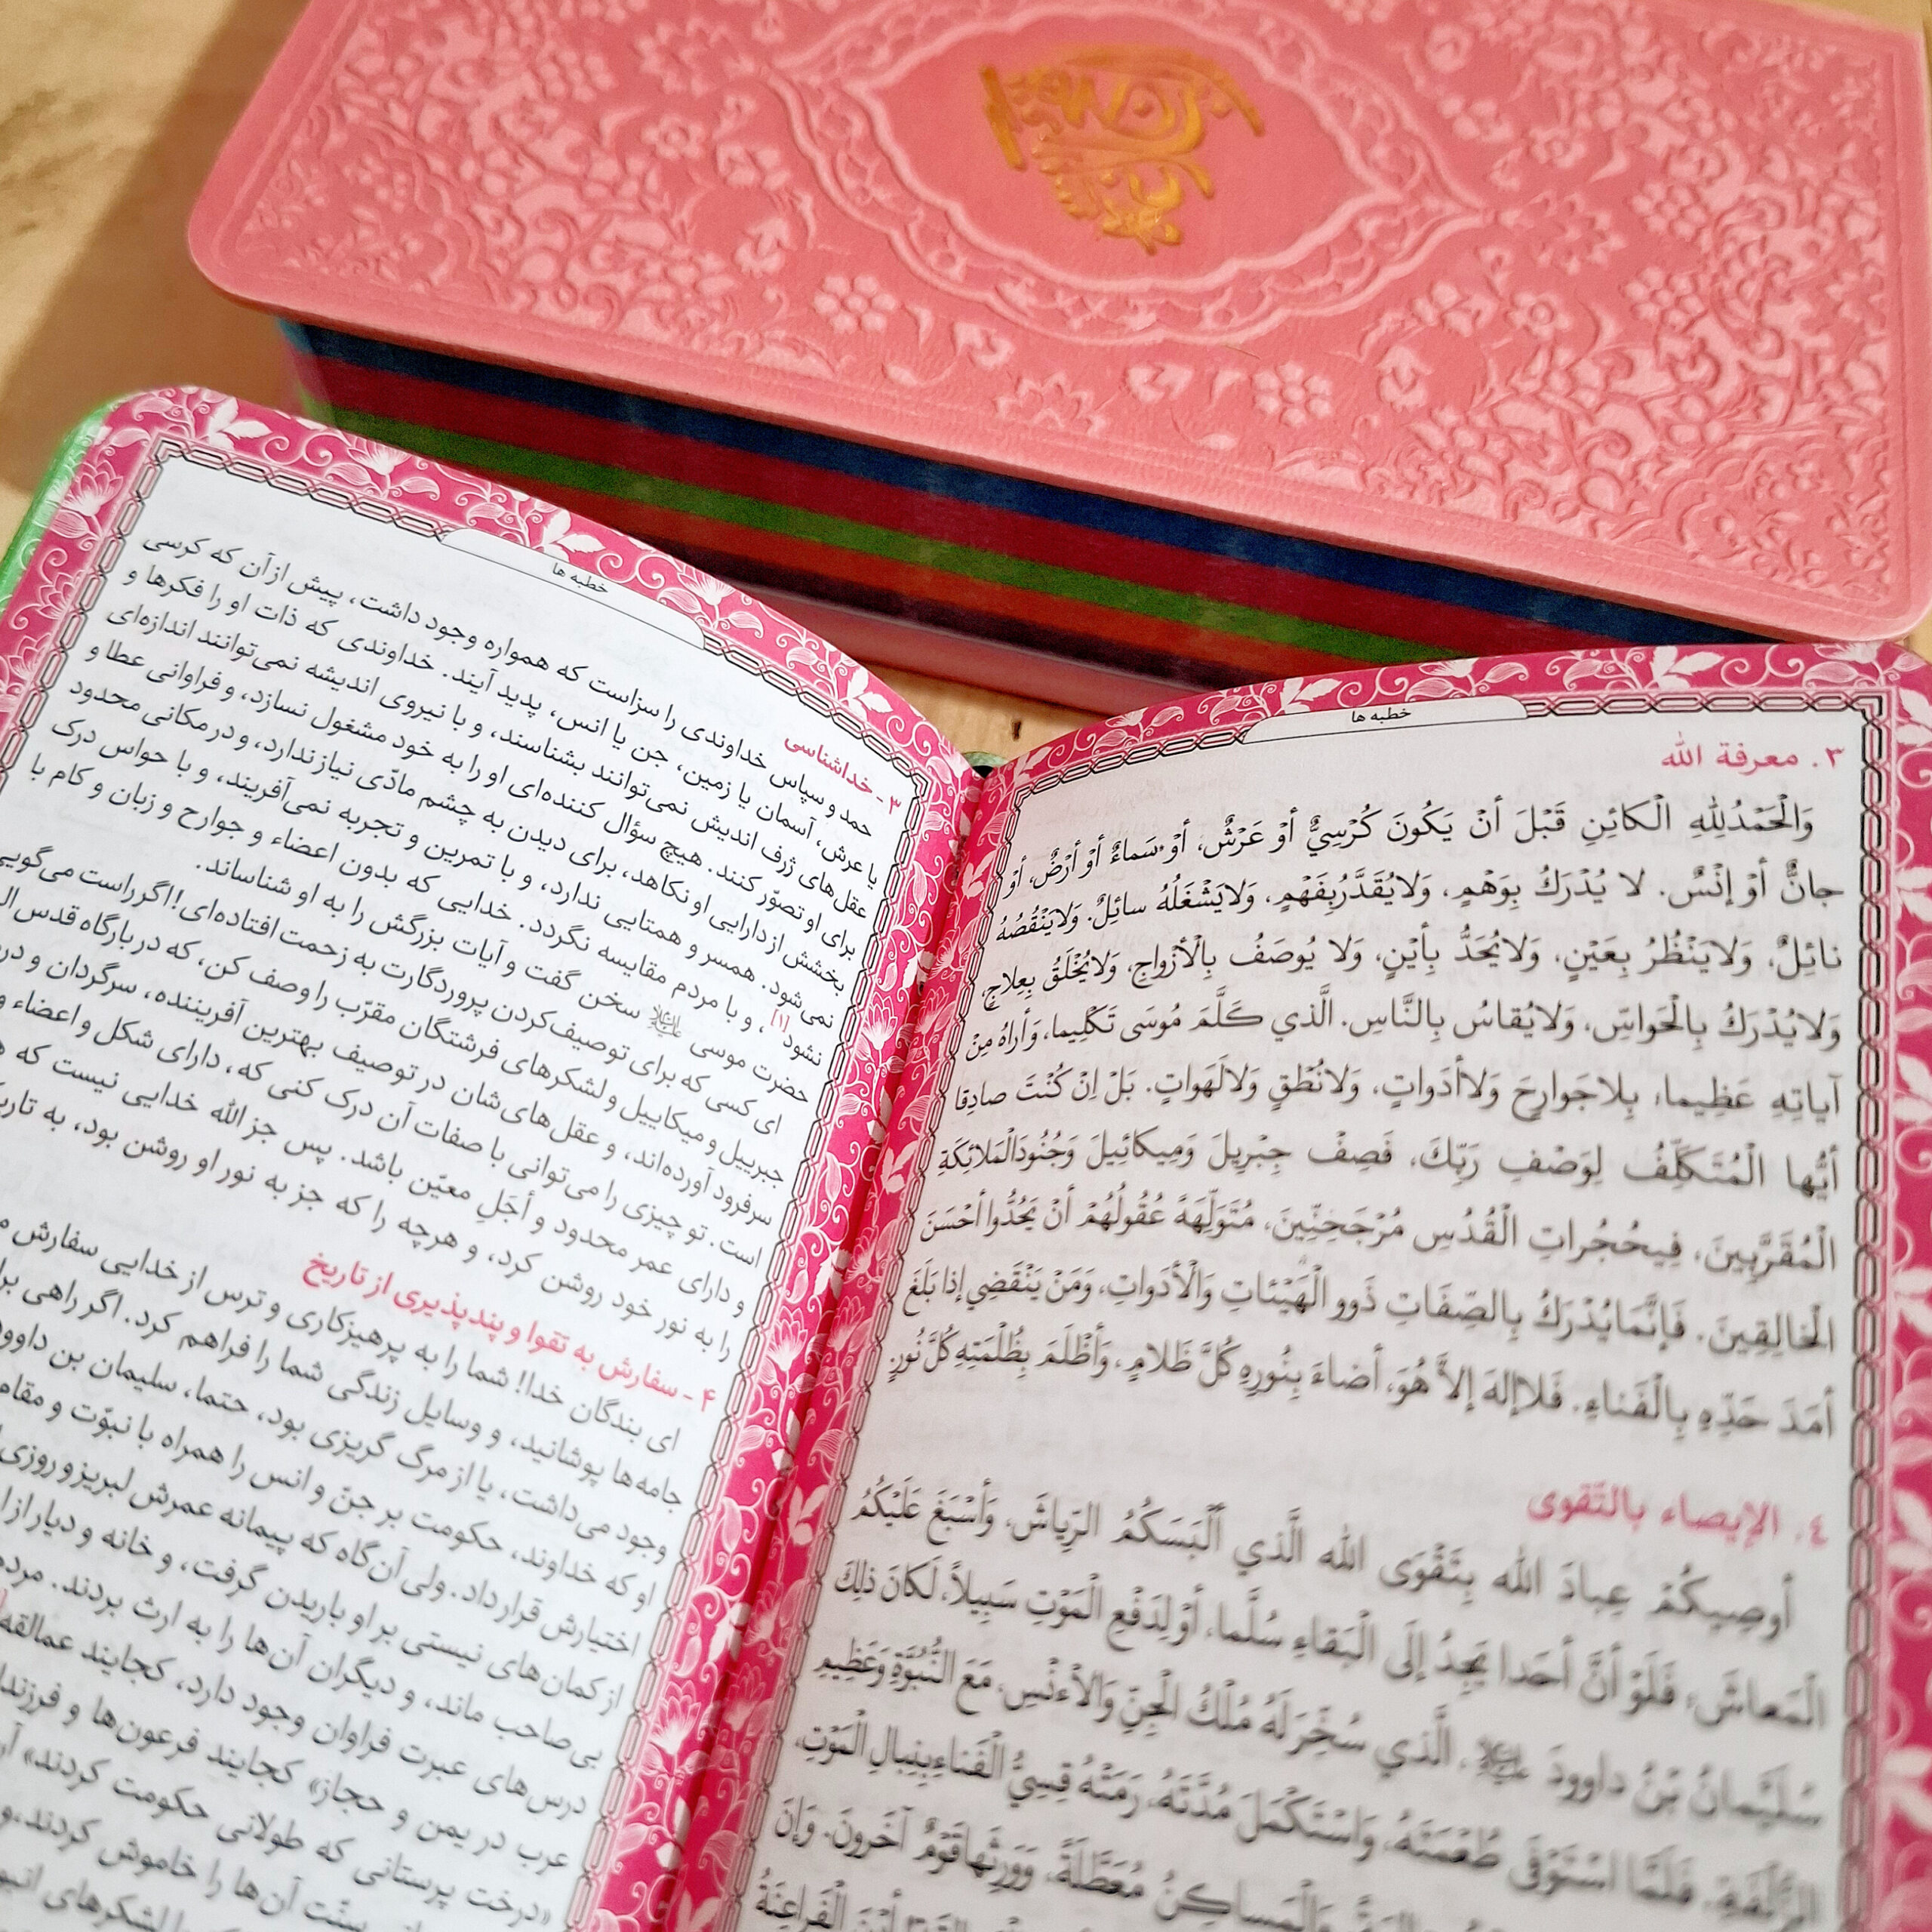 خطبه ها
۳. معرفة الله
وَالْحَمْدُلِلّٰهِ الْكائِنِ قَبْلَ أنْ يَكُونَ كُرْسِيٌّ أوْ عَرْشٌ، أوْ سَماءٌ أوْ أرْضٌ، أوْ
جانٌّ أوْ إنْسٌ. لا يُدْرَكُ بِوَهْمٍ، وَلايُقَدَّرُبِفَهْمٍ، وَلايَشْغَلُهُ سائِلٌ. وَلايَنْقُصُهُ
نائِلٌ، وَلايَنْظُرُ بِعَيْنٍ، وَلايُحَدُّ بِأيْنٍ، وَلا يُوصَفُ بِالْأزْواجِ، وَلايُخْلَقُ بِعِلاجٍ،
وَلايُدْرَكُ بِالْحَواسِّ، وَلايُقاسُ بِالنَّاسِ. الَّذي كَلَّمَ مُوسَى تَكْلِيما، وَأراهُ مِنْ
آياتِهِ عَظِيما، بِلاجَوارِحَ وَلاأدَواتٍ، وَلانُطْقٍ وَلالَهَواتٍ. بَلْ اِنْ كُنْتَ صادِقا
أيُّها الْمُتَكَلِّفُ لِوَصْفِ رَبِّكَ، فَصِفْ جِبْرِيلَ وَمِيكائِيلَ وَجُنُودَالْمَلائِكَةِ
الْمُقَرَّبِينَ، فِيحُجُراتِ الْقُدُسِ مُرْجَحِنِّينَ، مُتَوَلِّهَةً عُقُولُهُمْ أنْ يَحُدُّوا أحْسَنَ
الْخالِقِينَ. فَإِنَّمَايُدْرَكُ بِالصِّفَاتِ ذَوو الْهَيْئاتِ وَالْأدَواتِ، وَمَنْ يَنْقَضِي إذا بَلَغَ
أمَدَ حَدِّهِ بِالْفَناءِ. فَلاإلهَ إلاَّ هُوَ، أضاءَ بِنُورِهِ كُلَّ ظَلامٍ، وَأظْلَمَ بِظُلْمَتِهِ كُلَّ نُورٍ
٤. الإيصاء بالتّقوى
أُوصِيكُمْ عِبادَ الله بِتَقْوَى الله الَّذي ألْبَسَكُمُ الرِّياشَ، وَأسْبَغَ عَلَيْكُمُ
الْمَعاشَ، فَلَوْ أنَّ أحَدا يَجِدُ إلَى الْبَقاءِ سُلَّما، أوْلِدَفْعِ الْمَوْتِ سَبِيلاً، لَكانَ ذلِكَ
سُلَيْمانُ بْنُ داوودَ، الَّذي سُخِّرَلَهُ مُلْكُ الْجِنِّ وَالاءنْسِ، مَعَ النُّبُوَّةِ وَعَظِيمِ
الزُّلْفَةِ. فَلَمَّا اسْتَوْفَى طُعْمَتَهُ، وَاسْتَكْمَلَ مُدَّتَهُ، رَمَتْهُ قِسِيُّ الْفَناءِبِنِبالِ الْمَوْتِ،
وَالْمَساكِنُ مُعَطَّلَةً، وَوَرِثَهاقَوْمٌ آخَرونَ. وَإنَ
أيْنَ الْفَراعِنَةُ
خطبه ها
۳ - خداشناسی
حمد و سپاس خداوندی را سزاست که همواره وجود داشت، پیش از آن که کرسی
یا عرش، آسمان یا زمین، جن یا انس، پدید آیند. خداوندی که ذات او را فکرها و
عقل‌های ژرف اندیش نمی‌توانند بشناسند، و با نیروی اندیشه نمی‌توانند اندازه‌ای
برای او تصوّر کنند. هیچ سؤال کننده‌ای او را به خود مشغول نسازد، و فراوانی عطا و
بخشش از دارایی او نکاهد، برای دیدن به چشم مادّی نیاز ندارد، و در مکانی محدود
نمی‌شود. همسر و همتایی ندارد، و با تمرین و تجربه نمی‌آفریند، و با حواس درک
نشود[۱]، و با مردم مقایسه نگردد. خدایی که بدون اعضاء و جوارح و زبان و کام با
حضرت موسی علیه‌السلام سخن گفت و آیات بزرگش را به او شناساند.
ای کسی که برای توصیف‌کردن پروردگارت به زحمت افتاده‌ای! اگر راست می‌گویی
جبرییل و میکاییل و لشکرهای فرشتگان مقرّب را وصف کن، که در بارگاه قدس
سرفرود آورده‌اند، و عقل‌های‌شان در توصیف بهترین آفریننده، سرگردان و
است. تو چیزی را می‌توانی با صفات آن درک کنی که، دارای شکل و اعضاء و
و دارای عمر محدود و أجَلِ معیّن باشد. پس جز الله خدایی نیست که
را به نور خود روشن کرد، و هرچه را که جز به نور او روشن بود، به
۴ - سفارش به تقوا و پند پذیری از تاریخ
ای بندگان خدا! شما را به پرهیزکاری و ترس از خدایی سفارش
جامه‌ها پوشانید، و وسایل زندگی شما را فراهم کرد. اگر راهی
وجود می‌داشت، یا از مرگ گریزی بود، حتما، سلیمان بن داوود
او که خداوند، حکومت بر جنّ و انس را همراه با نبوّت و مقام
اختیارش قرار داد. ولی آن‌گاه که پیمانه عمرش لبریز و روزی
از کمان‌های نیستی بر او باریدن گرفت، و خانه و دیار از
بی‌صاحب ماند، و دیگران آن‌ها را به ارث بردند. مرده
درس‌های عبرت فراوان وجود دارد، کجایند عمالقه
عرب در یمن و حجاز» کجایند فرعون‌ها و
«درخت پرستانی که طولانی حکومت کردند»
سنّت آن‌ها را خاموش کردند، و
لشکرهای